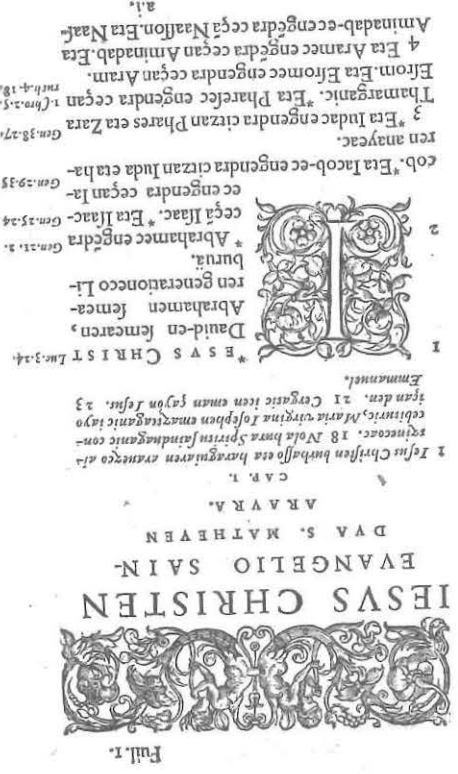 Fuil.1.
IESVS CHRISTEN
EVANGELIO SAIN-
DVA S. MATHEVEN
ARAVRA.
CAP. I.
1 Iesu Christen burhasso eta haraguiaren arauezco ai-
tzinecoac. 18 Nola hura Spiritu sainduaganic con-
cebituric, Maria virgina Iosephen emazteaganic iayo
içan den. 21 Cergatic icen eman çayón Iesus. 23
Emmanuel.
1 *ESVS CHRIST Luc.3.24.
Dauid-en semearen,
Abrahamen semea-
ren generationeco Li-
burua.
2 * Abrahamec engẽdra Gen.21.2.
ceçã Isaac. *Eta Isaac- Gen.25.24
ec engendra ceçan Ia-
cob. *Eta Iacob-ec engendra citzan Iuda eta ha- Gen.29.35
ren anayeac.
3 *Eta Iudac engendra citzan Phares eta Zara Gen.38.27.
Thamarganic. *Eta Pharesec engendra ceçan 1.Chro.2.5.
Esrom. Eta Esromec engendra ceçan Aram. ruth.4.18.
4 Eta Aramec engẽdra ceçan Aminadab. Eta
Aminadab-ec engẽdra ceçã Naasson. Eta Naas-
a.i.